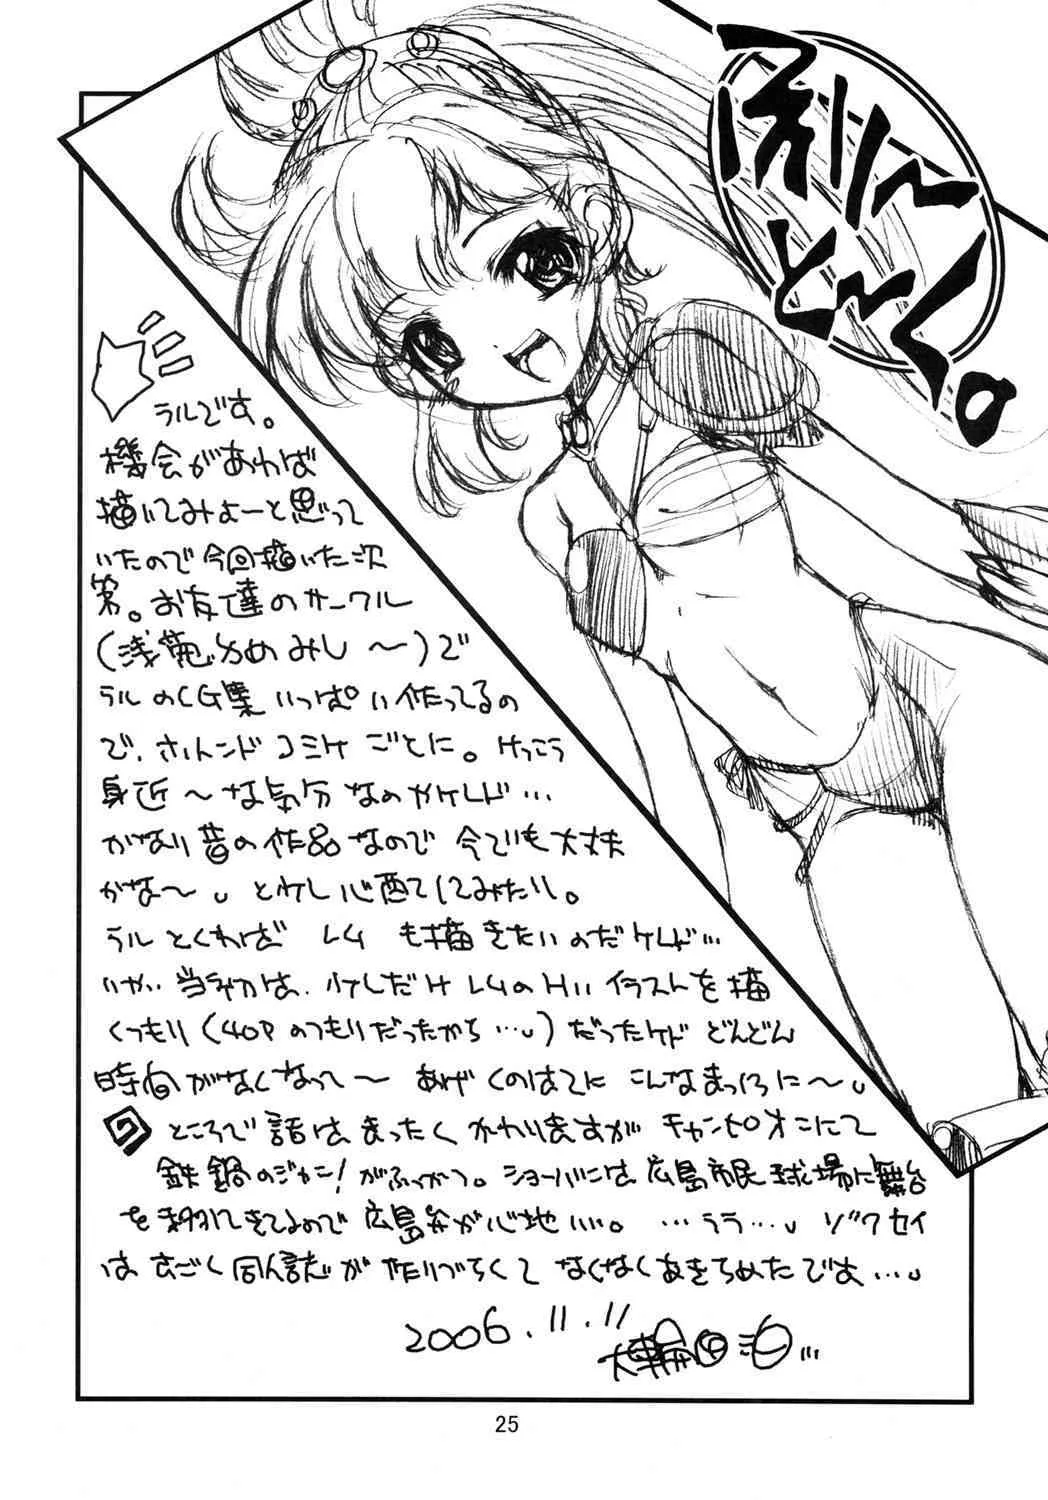 ふりーとーく。
ラルです。
機会があれば
描いてみよーと思って
いたので今回描いた次
第。お友達のサークル
でラルのCG集いっぱい作ってるの
で、ホントンドコミケごとに。けっこう
身近〜な気分なのかケレド…
かなり昔の作品なので今でも大丈夫
かな〜。と少し心配してみたり。
ラルとくれば レム も描きたいのだケレド…
いや、当初は、少しだけレムのHいイラストを描
くつもり(40Pのつもりだったから…)だったケド どんどん
時間がなくなって〜 あげくのはてに こんなまっ白に〜
ところで話はまったくかわりますが チャンピオンにて
鉄鍋のジャン!がふっかつ。ショーバンは広島市民球場に舞台
を移してきてるので広島弁が心地いい。…うう… ゾクセイ
はすごく同人誌が作りづらくて なくなくあきらめたです…
2006.11.11
25